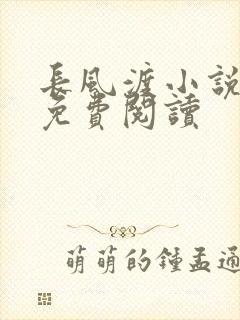 長風渡小說
免費閱讀
萌萌的鍾孟通